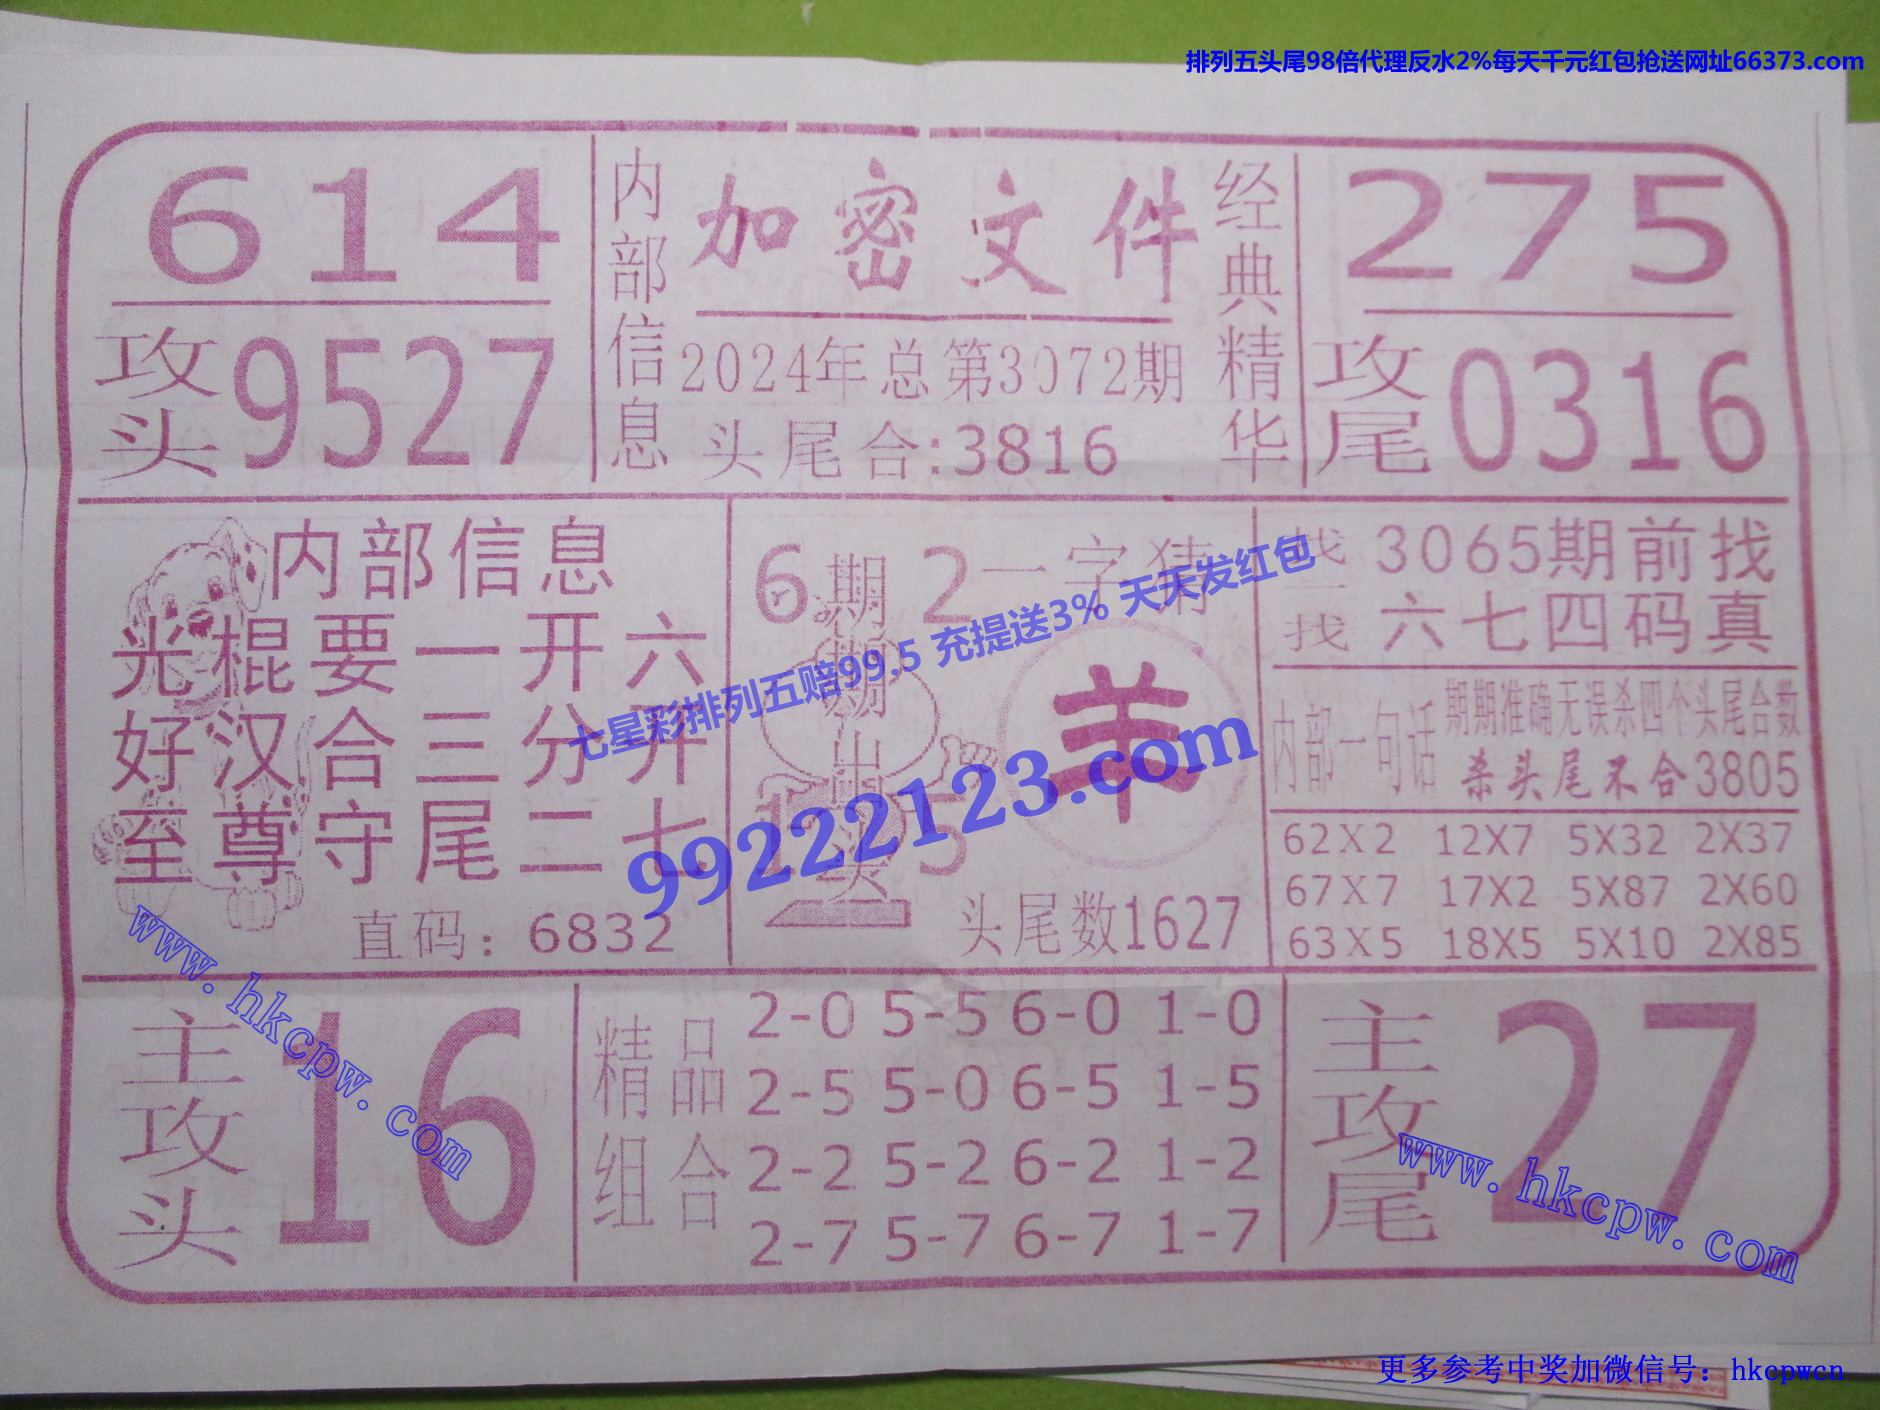 排列五头尾98倍代理反水2%每天千元红包抢送网址66373.com
614
攻头 9527
内部信息
加密文件
2024年总第3072期
头尾合:3816
经典精华
275
攻尾 0316
内部信息
光棍要一开六
好汉合三分开
至尊守尾二七
直码：6832
6 2
期期出头
1 5
一字猜
羊
头尾数1627
找一找
3065期前找
六七四码真
内部一句话
期期准确无误杀四个头尾合数
杀头尾不合3805
62X2 12X7 5X32 2X37
67X7 17X2 5X87 2X60
63X5 18X5 5X10 2X85
七星彩排列五赔99.5 充提送3% 天天发红包
99222123.com
主攻头
16
精品组合
2-0 5-5 6-0 1-0
2-5 5-0 6-5 1-5
2-2 5-2 6-2 1-2
2-7 5-7 6-7 1-7
主攻尾
27
www.hkcpw.com
www.hkcpw.com
更多参考中奖加微信号：hkcpwcn